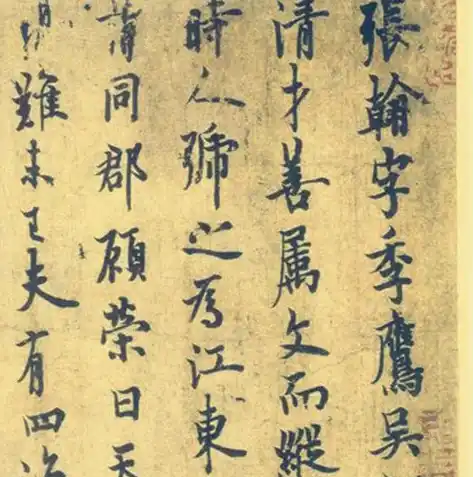 張翰字季鷹吳
清才善屬文而縱
時人號之為江東
謂同郡顧榮曰天
難未已夫有四